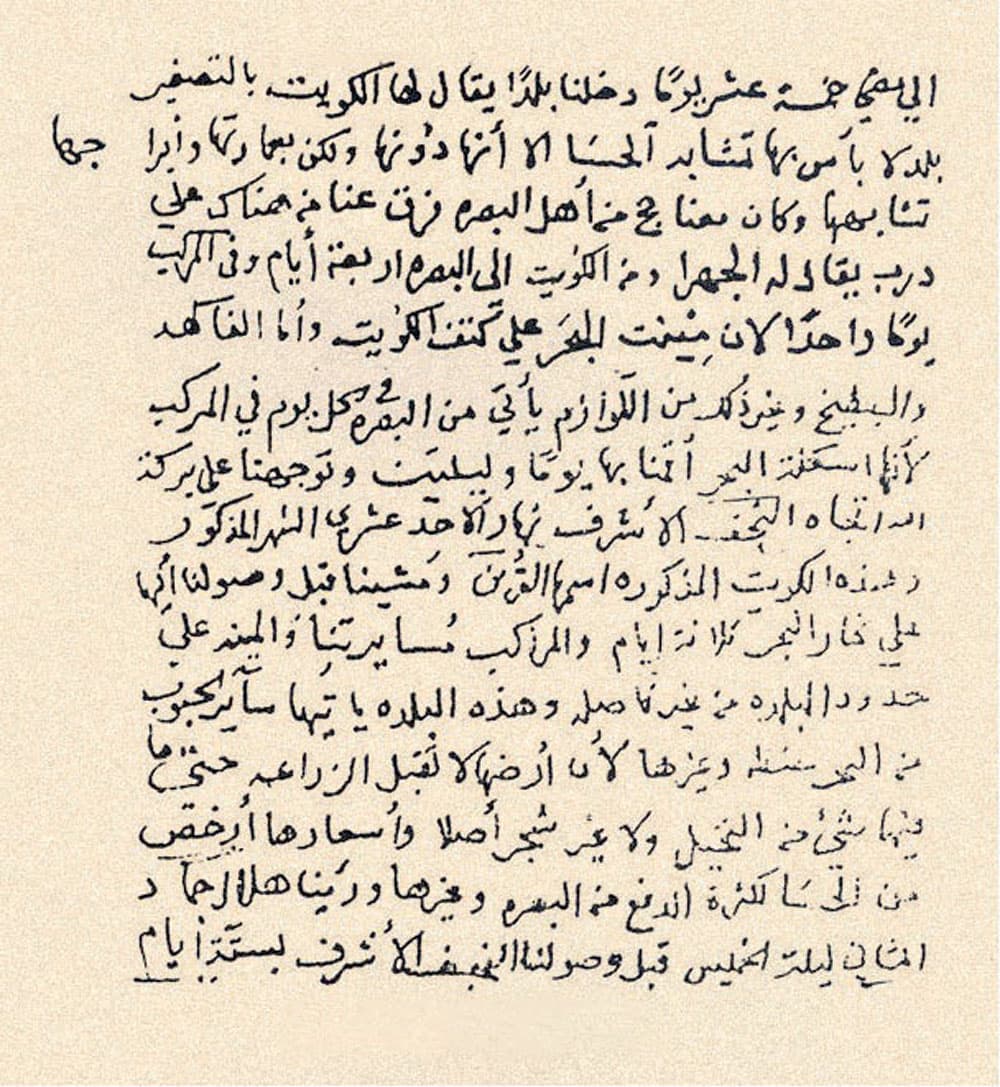 خمسة عشر يومًا دخلنا بلدًا يقال لها الكويت بالتصغير
بلد لا بأس بها تشابه الحسا الا أنها دونها ولكن بعمارتها وأبراجها
تشابهها وكان معنا حج من أهل البصره فرق عنا من هناك علي
درب يقال له الجهرا ومن الكويت الى البصره اربعة أيام وفي المركب
يومًا واحدًا لان مينت البحر علي كتف الكويت وأما الفاكهه
والبطيخ وغير ذلك من اللوازم يأتي من البصره كل يوم في المركب
لأنها اسكلة البحر أقمنا بها يومًا وليلتين وتوجهنا على بركة
الله اتجاه النجف الأشرف نهار الأحد عشرين الشهر المذكور
وهذه الكويت المذكوره اسمها القرين ومشينا قبل وصولنا إليها
علي البحر ثلاثة ايام والمراكب مسايرتنا والمينه علي
حدود البلده من غير فاصله وهذه البلده يأتيها سائر الحبوب
من البحر حنطه وغيرها لأن أرضها لا تقبل الزراعه حتى ما
فيها شيء من النخيل ولا غير شجر أصلا وأسعارها أرخص
من الحسا لكثرة الدفع من البصره وغيرها ورأينا هلال جماد
الثاني ليلة الخميس قبل وصولنا النجف الأشرف بستة أيام